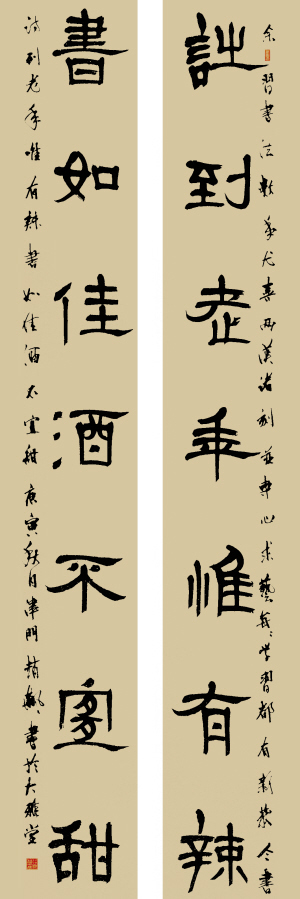 余習書法數年尤喜两漢諸刻並專心求藝 学習都有新 今書
詩到老年惟有辣
書如佳酒不宜甜
詩到老年唯有辣書如佳酒不宜甜庚寅秋月津門 書於大雅堂